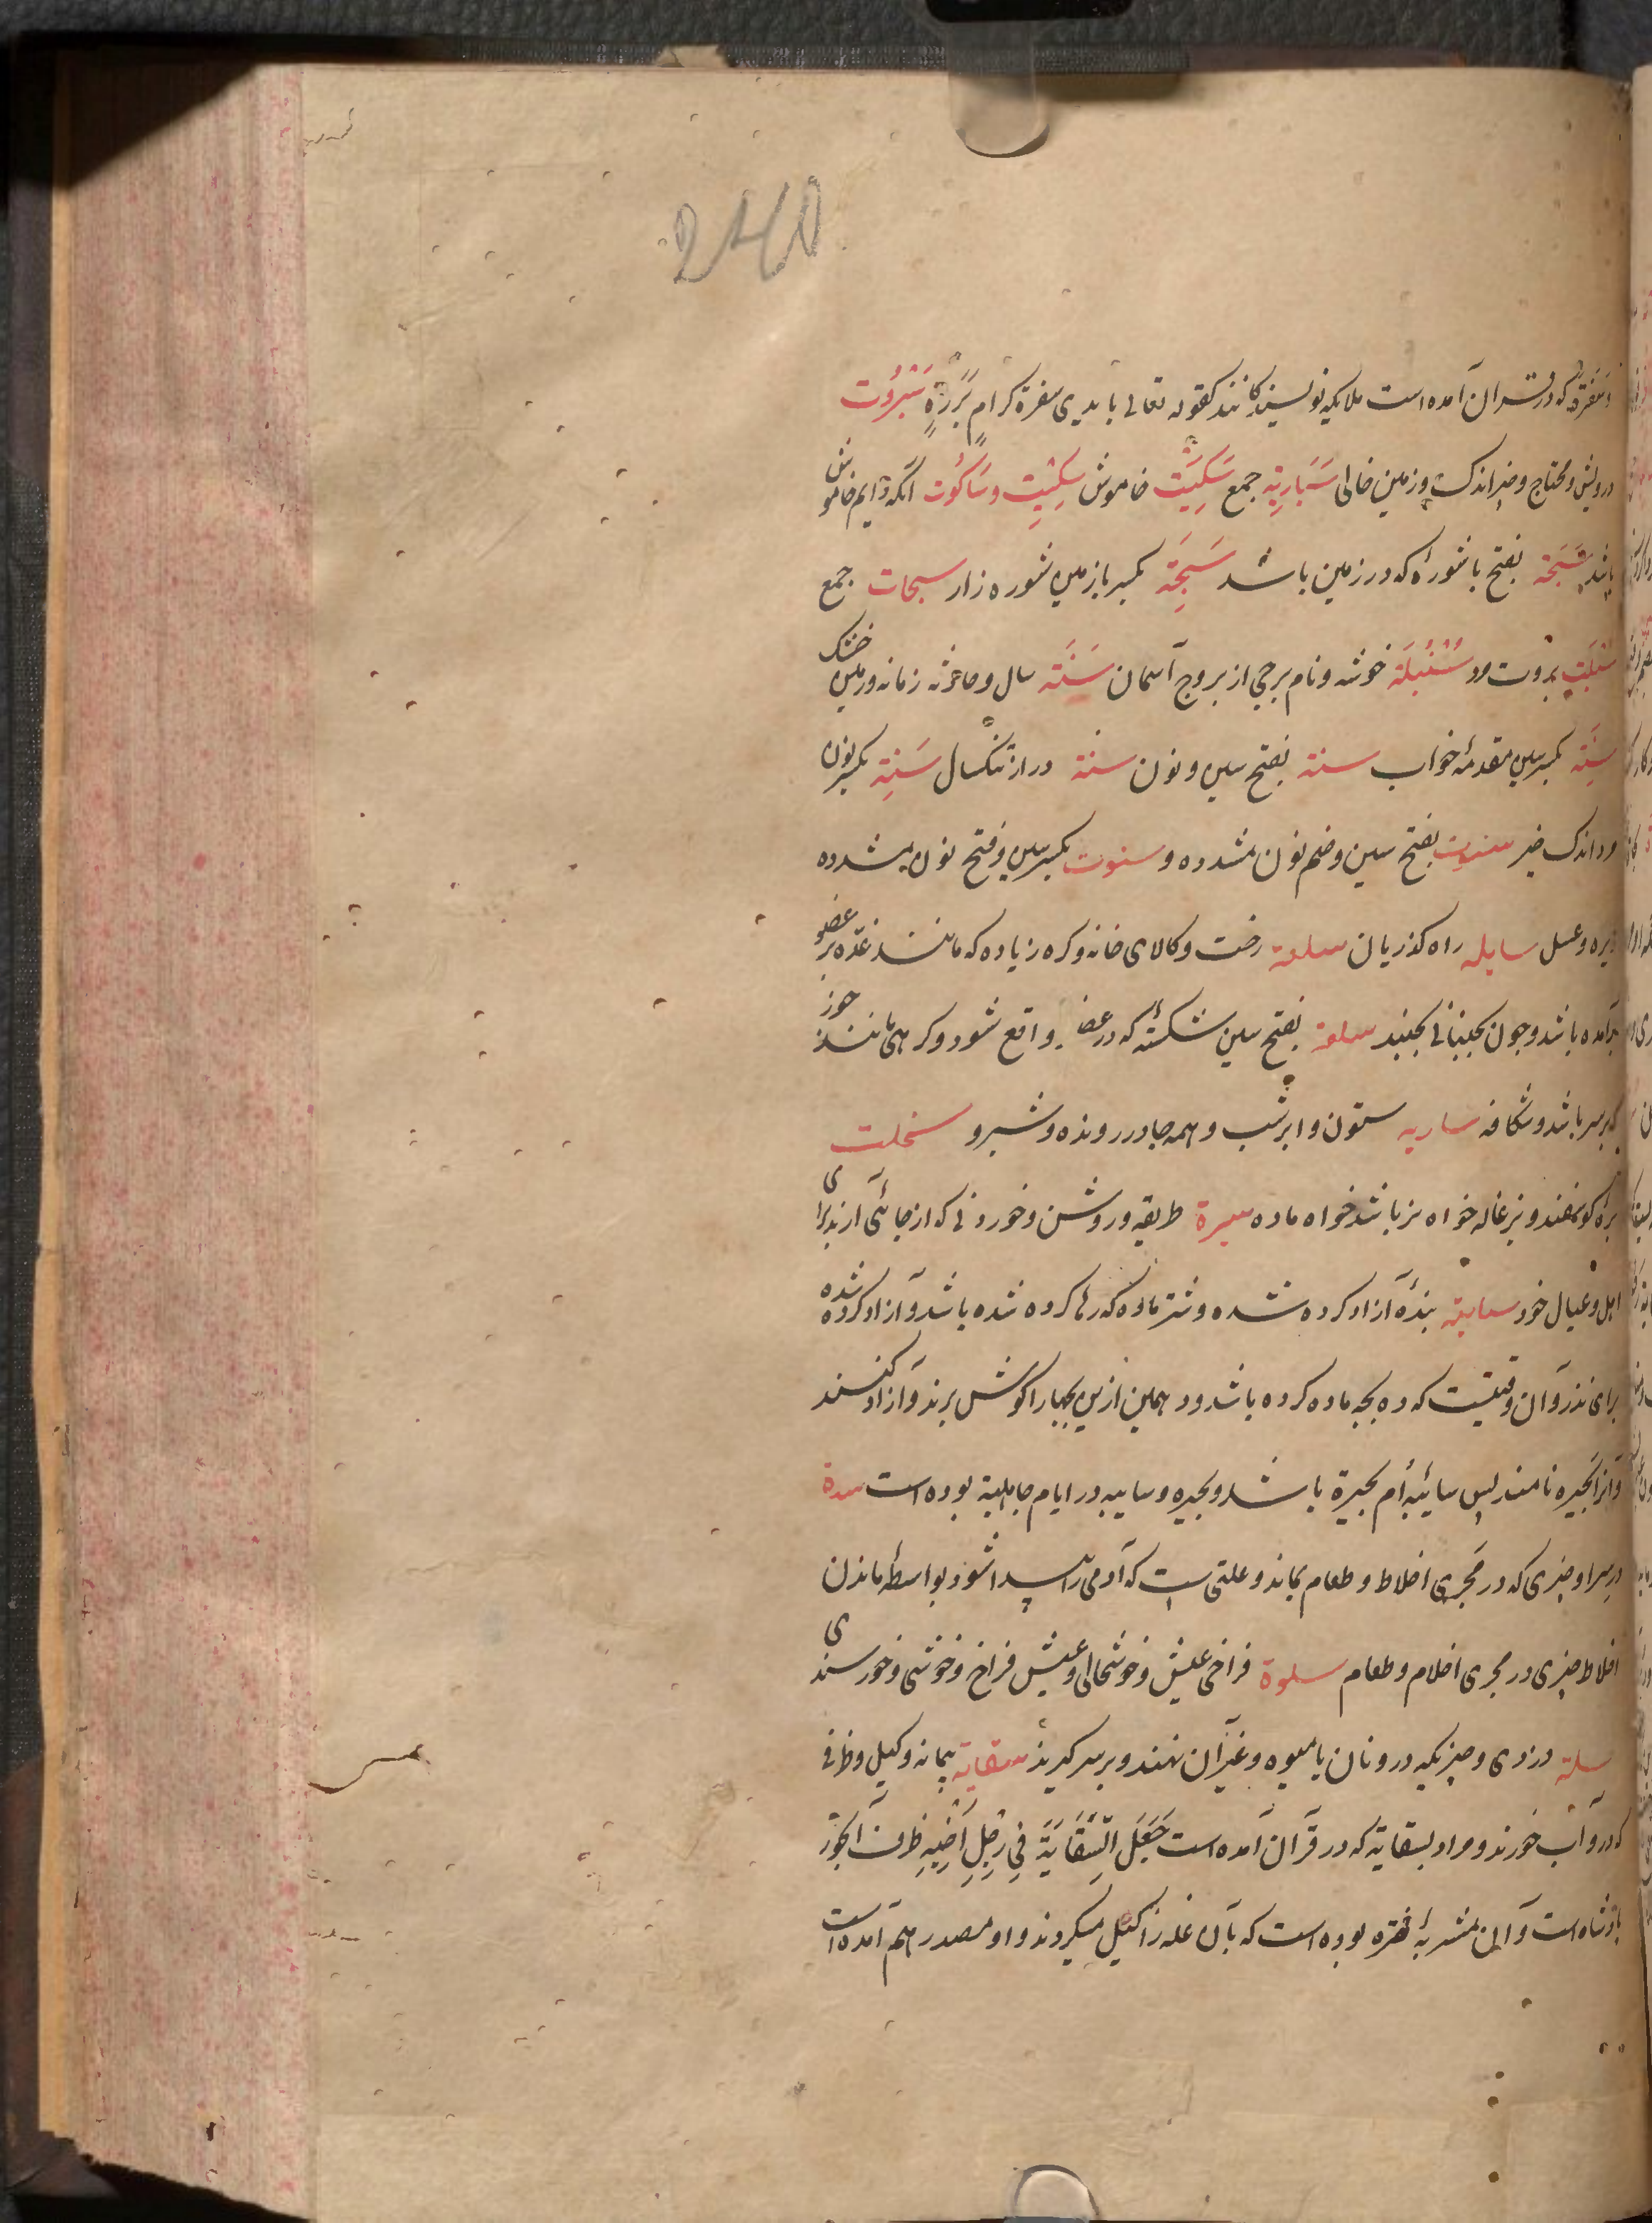 و سفرة که در قران آمده است ملایکه نویسندکانند کقوله تعالی بایدی سفرة کرام بررة سبروت
درویش و محتاج و چیز اندک و زمین خالی سباریة جمع سکیت خاموش سکیت و ساکوت آنکه دایم خاموش
باشد سبخة بفتح با شوره که در زمین باشد سبخة بکسر با زمین شوره زار سبخات جمع
بروت مرد سنبلة خوشه و نام برجی از بروج آسمان سنة سال و زمانه و زمین خشک
سنة بکسر سین مقدمه خواب سنة بفتح سین و نون سنة دراز تنکسال سنة بکسر نون
و اندک خیر سنوت بفتح سین و ضم نون مشدده و سنوت بکسر سین و فتح نون مشدده
زیره و عسل سایله راه کذریان سلعة رخت و کالای خانه و کره زیاده که مانند غده بر عضو
برآمده باشد و چون بجنبانی بجنبد سلعة بفتح سین شکستکی که در عضا واقع شود و کرهی مانند جوز
که بر سر باشد و شکافه ساریه ستون و ابر شب و همه جا در رونده و شبرو سخلت
بره کوسفند و بزغاله خواه نر باشد خواه ماده سیرة طریقه و روش و خوردنی که از جائی آرند برای
اهل و عیال خود سایبة بندۀ آزاد کرده شده و شتر ماده که رها کرده شده باشد و آزاد کرده شده
برای نذر و آن وقتیست که ده بچه ماده کرده باشد و دهمین ازین بچها را کوش برند و آزاد کنند
و آنرا بحیره نامند پس سائبه أم بحیرة باشد و بحیره و سایبه در ایام جاهلیة بوده است سدة
در سرا و چیزی که در مجری اخلاط و طعام بماند و علتی است که آدمی را پیدا شود بواسطۀ ماندن
اخلاط چیزی در مجری اخلام و طعام سلوة فراخی عیش و خوشحالی و عیش فراخ و خوشی و خورسندی
سلة دزدی و چیزیکه درو نان یا میوه و غیر آن نهند و بر سر کیرند سقایة پیمانه و کیل و ظرفی
که درو آب خورند و مراد بسقایة که در قرآن آمده است جَعَلَ السِّقَایَةَ فِي رَحْلِ أَخِیهِ ظرف آبخور
پادشاه است و آن مشربۀ نقره بوده است که بآن غله را کیل میکردند و او مصدر هم آمده است